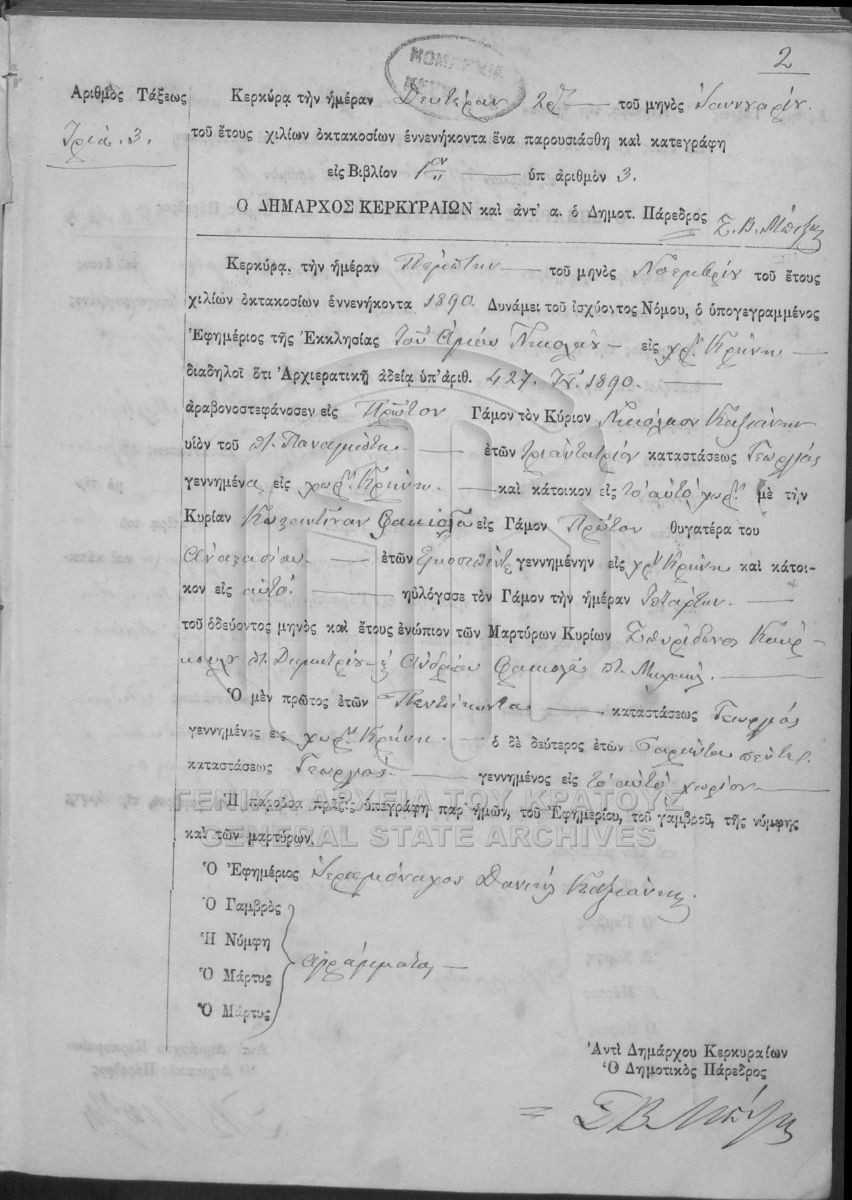 2
ΝΟΜΑΡΧΙΑ
Ἀριθμὸς Τάξεως
Τρία. 3.
Κερκύρᾳ τὴν ἡμέραν Δευτέραν 2αν τοῦ μηνὸς Ἰαννουαρίου
τοῦ ἔτους χιλίων ὀκτακοσίων ἐννενήκοντα ἕνα παρουσιάσθη καὶ κατεγράφη
εἰς Βιβλίον 1ον ὑπ ἀριθμὸν 3.
Ὁ ΔΗΜΑΡΧΟΣ ΚΕΡΚΥΡΑΙΩΝ καὶ ἀντ᾽ α. ὁ Δημοτ. Πάρεδρος Σ. Β.
Κερκύρᾳ, τὴν ἡμέραν Πέμπτην τοῦ μηνὸς Νοεμβρίου τοῦ ἔτους
χιλίων ὀκτακοσίων ἐννενήκοντα 1890. Δυνάμει τοῦ ἰσχύοντος Νόμου, ὁ ὑπογεγραμμένος
Ἐφημέριος τῆς Ἐκκλησίας τοῦ Ἁγίου Νικολάου εἰς χωρ. Κρήνη
διαδηλοῖ ὅτι Ἀρχιερατικῇ ἀδείᾳ ὑπ᾽ ἀριθ. 427. 1890.
ἀραβονοστεφάνοσεν εἰς Πρῶτον Γάμον τὸν Κύριον Νικόλαον Καζιάνην
υἱὸν τοῦ π. Παναγιώτου ἐτῶν τριαντατριῶν καταστάσεως Γεωργὸς
γεννημένος εἰς χωρ. Κρήνη καὶ κάτοικον εἰς τὸ αὐτὸ χωρ. μὲ τὴν
Κυρίαν Κωσταντίναν Φακιολᾶ εἰς Γάμον Πρῶτον θυγατέρα του
Ἀναστασίου ἐτῶν εἰκοσιπέντε γεννημένην εἰς χωρ. Κρήνη καὶ κάτοι-
κον εἰς αὐτό. ηὐλόγσσε τὸν Γάμον τὴν ἡμέραν Τετάρτην.
τοῦ ὁδεύοντος μηνὸς καὶ ἔτους ἐνώπιον τῶν Μαρτύρων Κυρίων Σπυρίδωνος
π. Δημητρίου Ἀνδρέου Φακιολᾶ π. Μιχαήλ.
Ὁ μὲν πρῶτος ἐτῶν Πεντήκοντα καταστάσεως Γεωργὸς
γεννημένος εἰς χωρ. Κρήνη ὁ δὲ δεύτερος ἐτῶν Σαράντα πέντε.
καταστάσεως Γεωργός. γεννημένος εἰς τὸ αὐτὸ χωρίον
ΓΕΝΙΚΑ ΑΡΧΕΙΑ ΤΟΥ ΚΡΑΤΟΥΣ
Ἡ παροῦσα πρᾶξις ὑπεγράφη παρ᾽ ἡμῶν, τοῦ Ἐφημερίου, τοῦ γαμβροῦ, τῆς νύμφης
GENERAL STATE ARCHIVES
καὶ τῶν μαρτύρων.
Ὁ Ἐφημέριος Ἱερομόναχος Δανιὴλ Καζιάνης.
Ὁ Γαμβρὸς
Ἡ Νύμφη
Ὁ Μάρτυς
ἀγράμματοι
Ὁ Μάρτυς
Ἀντὶ Δημάρχου Κερκυραίων
Ὁ Δημοτικὸς Πάρεδρος
Σ Β